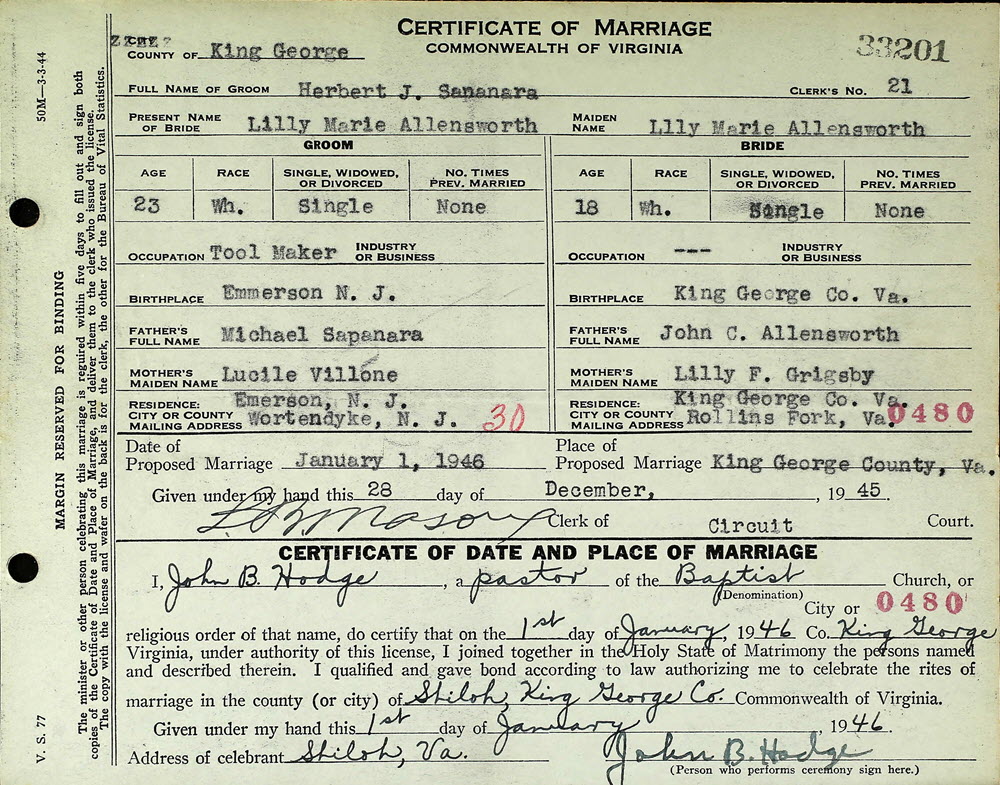 CERTIFICATE OF MARRIAGE
COMMONWEALTH OF VIRGINIA
33201
COUNTY OF King George
FULL NAME OF GROOM Herbert J. Sapanara CLERK'S NO. 21
PRESENT NAME OF BRIDE Lilly Marie Allensworth MAIDEN NAME Llly Marie Allensworth
GROOM BRIDE
AGE RACE SINGLE, WIDOWED, OR DIVORCED NO. TIMES PREV. MARRIED AGE RACE SINGLE, WIDOWED, OR DIVORCED NO. TIMES PREV. MARRIED
23 Wh. Single None 18 Wh. Single None
OCCUPATION Tool Maker INDUSTRY OR BUSINESS OCCUPATION --- INDUSTRY OR BUSINESS
BIRTHPLACE Emmerson N. J. BIRTHPLACE King George Co. Va.
FATHER'S FULL NAME Michael Sapanara FATHER'S FULL NAME John C. Allensworth
MOTHER'S MAIDEN NAME Lucile Villone MOTHER'S MAIDEN NAME Lilly F. Grigsby
RESIDENCE: Emerson, N. J. RESIDENCE: King George Co. Va.
CITY OR COUNTY MAILING ADDRESS Wortendyke, N. J. 30 CITY OR COUNTY MAILING ADDRESS Rollins Fork, Va. 0480
Date of Proposed Marriage January 1, 1946 Place of Proposed Marriage King George County, Va.
Given under my hand this 28 day of December, , 19 45.
L B Mason Clerk of Circuit Court.
CERTIFICATE OF DATE AND PLACE OF MARRIAGE
I, John B. Hodge, a pastor of the Baptist Church, or
(Denomination) City or 0480
religious order of that name, do certify that on the 1st day of January, 1946 Co. King George
Virginia, under authority of this license, I joined together in the Holy State of Matrimony the persons named
and described therein. I qualified and gave bond according to law authorizing me to celebrate the rites of
marriage in the county (or city) of Shiloh, King George Co. Commonwealth of Virginia.
Given under my hand this 1st day of January 1946.
Address of celebrant Shiloh, Va. John B. Hodge
(Person who performs ceremony sign here.)
50M—3-3-44
V. S. 77
MARGIN RESERVED FOR BINDING
The minister or other person celebrating this marriage is required within five days to fill out and sign both
copies of the Certificate of Date and Place of Marriage, and deliver them to the clerk who issued the license.
The copy with the license and wafer on the back is for the clerk, the other for the Bureau of Vital Statistics.